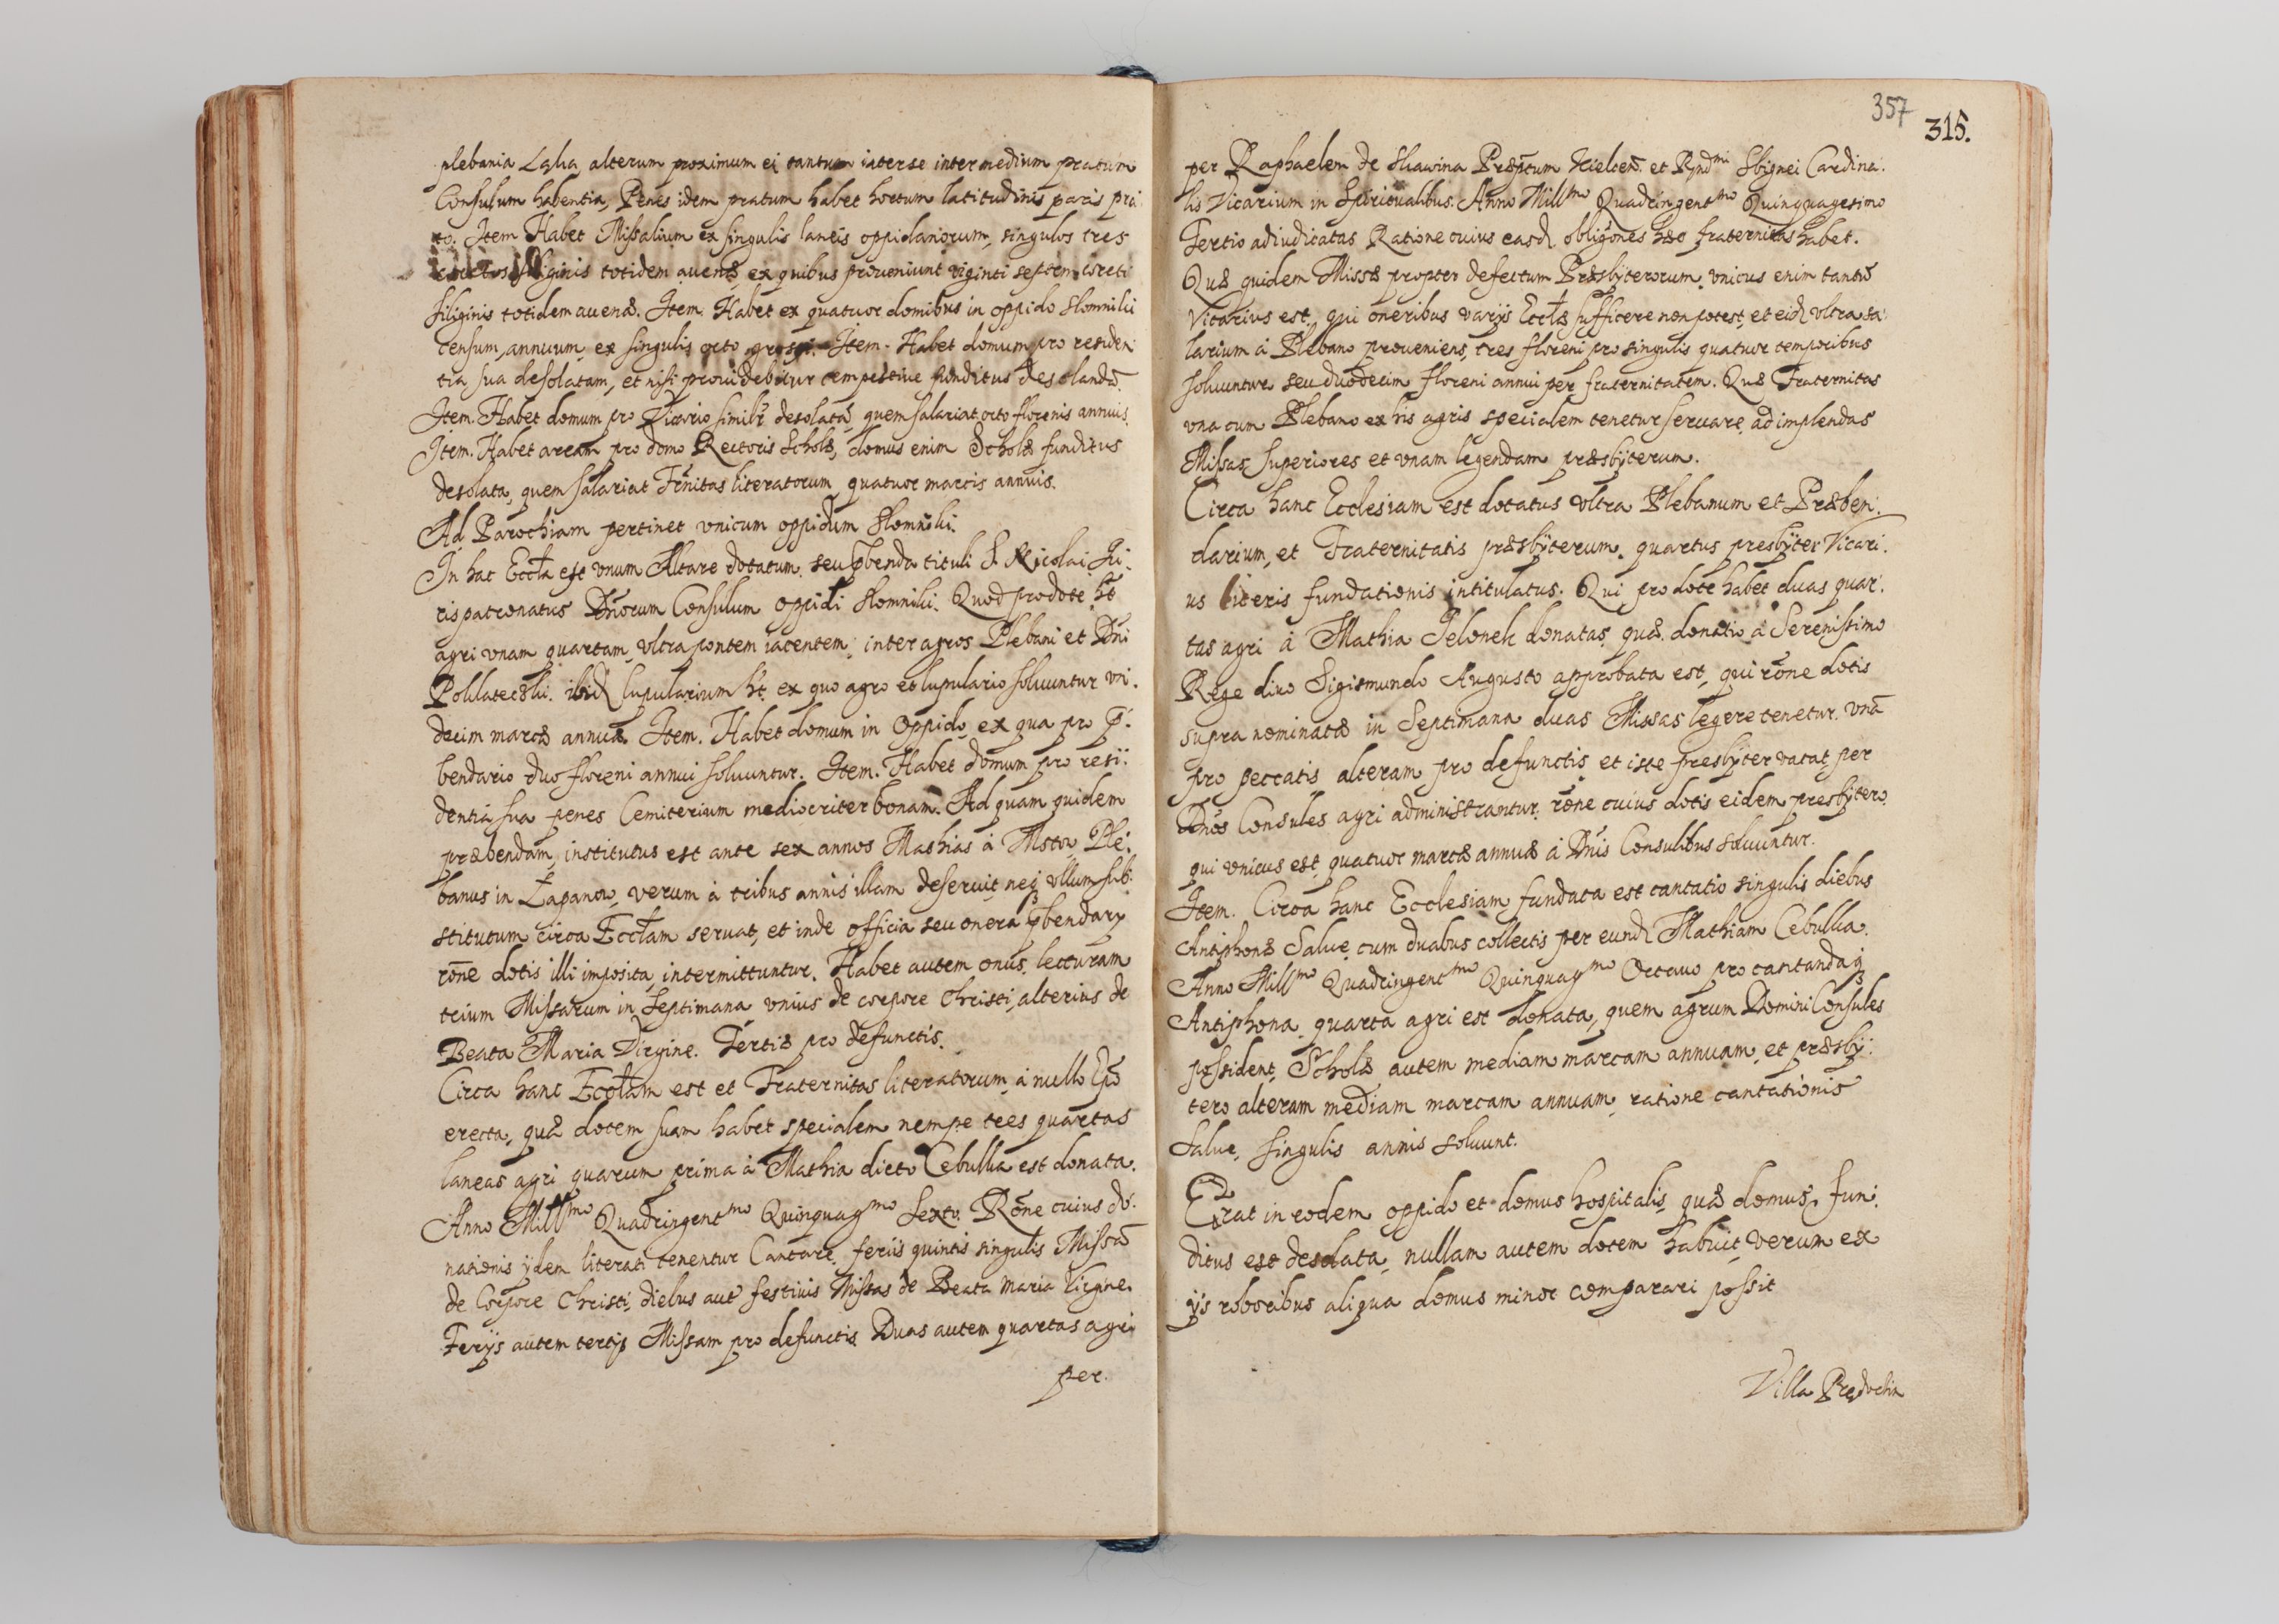 plebania Ląka alterum proximum ei tantum inter se intermedium pratum
Consulum habentia, Penes idem pratum habet hortum latitudinis paris pra
to. Item Habet Missalium ex singulis laneis oppidanorum, singulos tres
coretos siliginis totidem auenæ, ex quibus proueniunt viginti septem coreti
siliginis totidem auenæ. Item. Habet ex quatuor domibus in oppido Slomniki
censum, annuum, ex singulis octo grossi. Item. Habet domum pro residen
tia sua desolatam, et nisi prouidebitur tempestiue funditus desolandā.
Item. Habet domum pro Vicario similr̄ desolatā, quem salariat octo florenis annuis.
Item. Habet aream pro domo Rectoris Scholæ, domus enim Scholæ funditus
desolata, quem salariat Frn̄itas literatorum quatuor marcis annuis.
Ad Parochiam pertinet vnicum oppidum Slomniki.
In hac Eccľa est vnum Altare dotatum, seu p̄benda tituli S. Nicolai Iu:
ris patronatus Dn̄orum Consulum oppidi Slomniki. Quod pro dote ht̄
agri vnam quartam, vltra pontem iacentem, inter agros Plebani et Dn̄i
Poklateczki. ibid lupularium ht̄. ex quo agro et lupulario soluuntur vn:
decim marcæ annuæ. Item. Habet domum in oppido, ex qua pro p̄:
bendario duo floreni annui soluuntur. Item. Habet domum pro resi:
dentia sua penes Cemiterium mediocriter bonam. Ad quam quidem
præbendam, institutus est ante sex annos Mathias à Mstow Ple:
banus in Łapanow, verum à tribus annis illam deseruit, neq ullum sub:
stitutum circa Eccľam seruat, et inde officia seu onera p̄bendarÿ
rōne dotis illi imposita, intermittuntur. Habet autem onus, lecturam
trium Missarum in Septimana vnius de corpore Christi, alterius de
Beata Maria Virgine. Tertiæ pro defunctis.
Circa hanc Eccľam est et Fraternitas literatorum, à nullo Ep̄o
erecta, quæ dotem suam habet specialem nempe tres quartas
laneas agri quarum prima à Mathia dicto Cebulka est donata.
Anno Millmo Quadringentmo Quinquagmo Sexto. Rōne cuius do:
nationis ijdem literati tenentur Cantare, feriis quintis singulis Missā
de Corpore Christi, diebus aut festiuis Missas de Beata Maria Virgine.
Ferijs autem tertijs Missam pro defunctis. Duas autem quartas agri
per.
357
315.
per Raphaelem de Skawina Præptum Kielceń. et Rṇdmi Sbignei Cardina:
lis Vicarium in Spiritualibus. Anno Millmo Quadringentmo Quinquagesimo
Tertio adiudicatas Ratione cuius easd obligōnes hæc fraternitas habet.
Quæ quidem Missæ propter defectum Præsbÿterorum, vnicus enim tantū
Vicarius est, qui oneribus varijs Eccľæ sufficere non potest, et eid vltra sa:
larium à Plebano proueniens, tres floreni pro singulis quatuor temporibus
soluuntur seu duodecim floreni annui per fraternitatem. Quæ Fraternitas
vna cum Plebano ex his agris specialem tenetur seruare, ad implendas
Missas superiores et vnam legendam præsbÿterum.
Circa hanc Ecclesiam est dotatus vltra Plebanum et Præben:
darium, et Fraternitatis præsbÿterum, quartus presbÿter Vicari:
us literis fundationis intitulatus. Qui pro dote habet duas quar:
tas agri à Mathia Jelonek donatas, quæ donatio à Serenissimo
Rege diuo Sigismundo Augusto approbata est, qui rōne dotis
supra nominatæ in Septimana duas Missas legere tenetur. vnā
pro peccatis, alteram pro defunctis, et iste presbÿter vacat, per
Dn̄os Consules agri administrantur, rōne cuius dotis eidem presbÿtero
qui vnicus est, quatuor marcæ annuæ à Dn̄is Consulibus soluuntur.
Item. Circa hanc Ecclesiam fundata est cantatio singulis diebus
Antiphonæ Salue, cum duabus collectis per eund Mathiam Cebulka.
Anno Millmo Quadringentmo Quinquagmo Octauo pro cantandaq
Antiphona quarta agri est donata, quem agrum Domini Consules
possident, Scholæ autem mediam marcam annuam, et præsbÿ:
tero alteram mediam marcam annuam, ratione cantationis
Salue, singulis annis soluunt.
Erat in eodem oppido et domus hospitalis, quæ domus fun:
ditus est desolata, nullam autem dotem habuit, verum ex
ijs roboribus aliqua domus minor comparari possit
Villa Prędochin